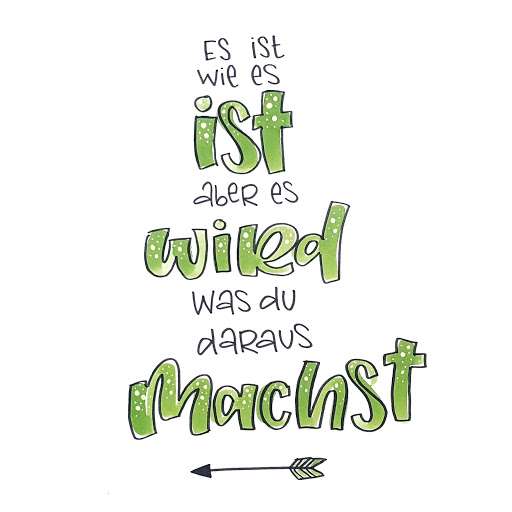 Es ist
wie es
ist
aber es
wird
was du
daraus
machst